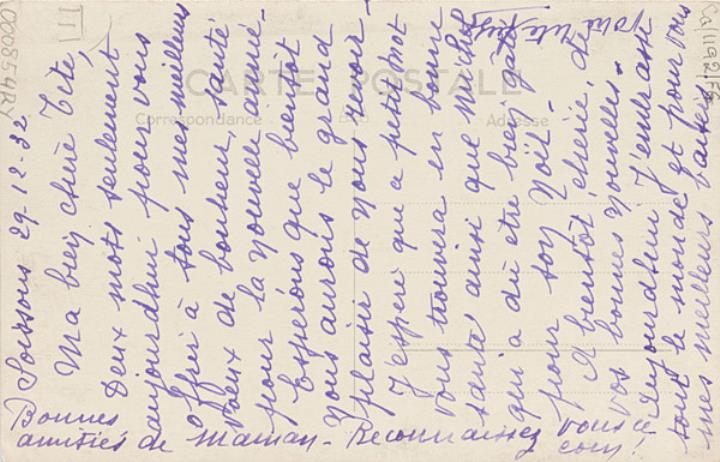 Soissons 29-12-32
Ma bien chère Tété,
Deux mots seulement
aujourd'hui pour vous
offrir à tous mes meilleurs
voeux de bonheur, santé
pour la nouvelle année-
Espérons que bientôt
nous aurons le grand
plaisir de vous revoir-
J'espère que ce petit mot
vous trouvera en bonne
santé ainsi que Michel
qui a dû être bien gâté
pour son Noël-
A bientôt chérie, de
vos bonnes nouvelles-
Aujourd'hui J'embrasse
tout le monde et pour vous
mes meilleurs baisers
Votre
Bonnes
amitiés de Maman - Reconnaissez vous ce
coin!
CARTE POSTALE
Correspondance
Adresse
C00854RY
TT